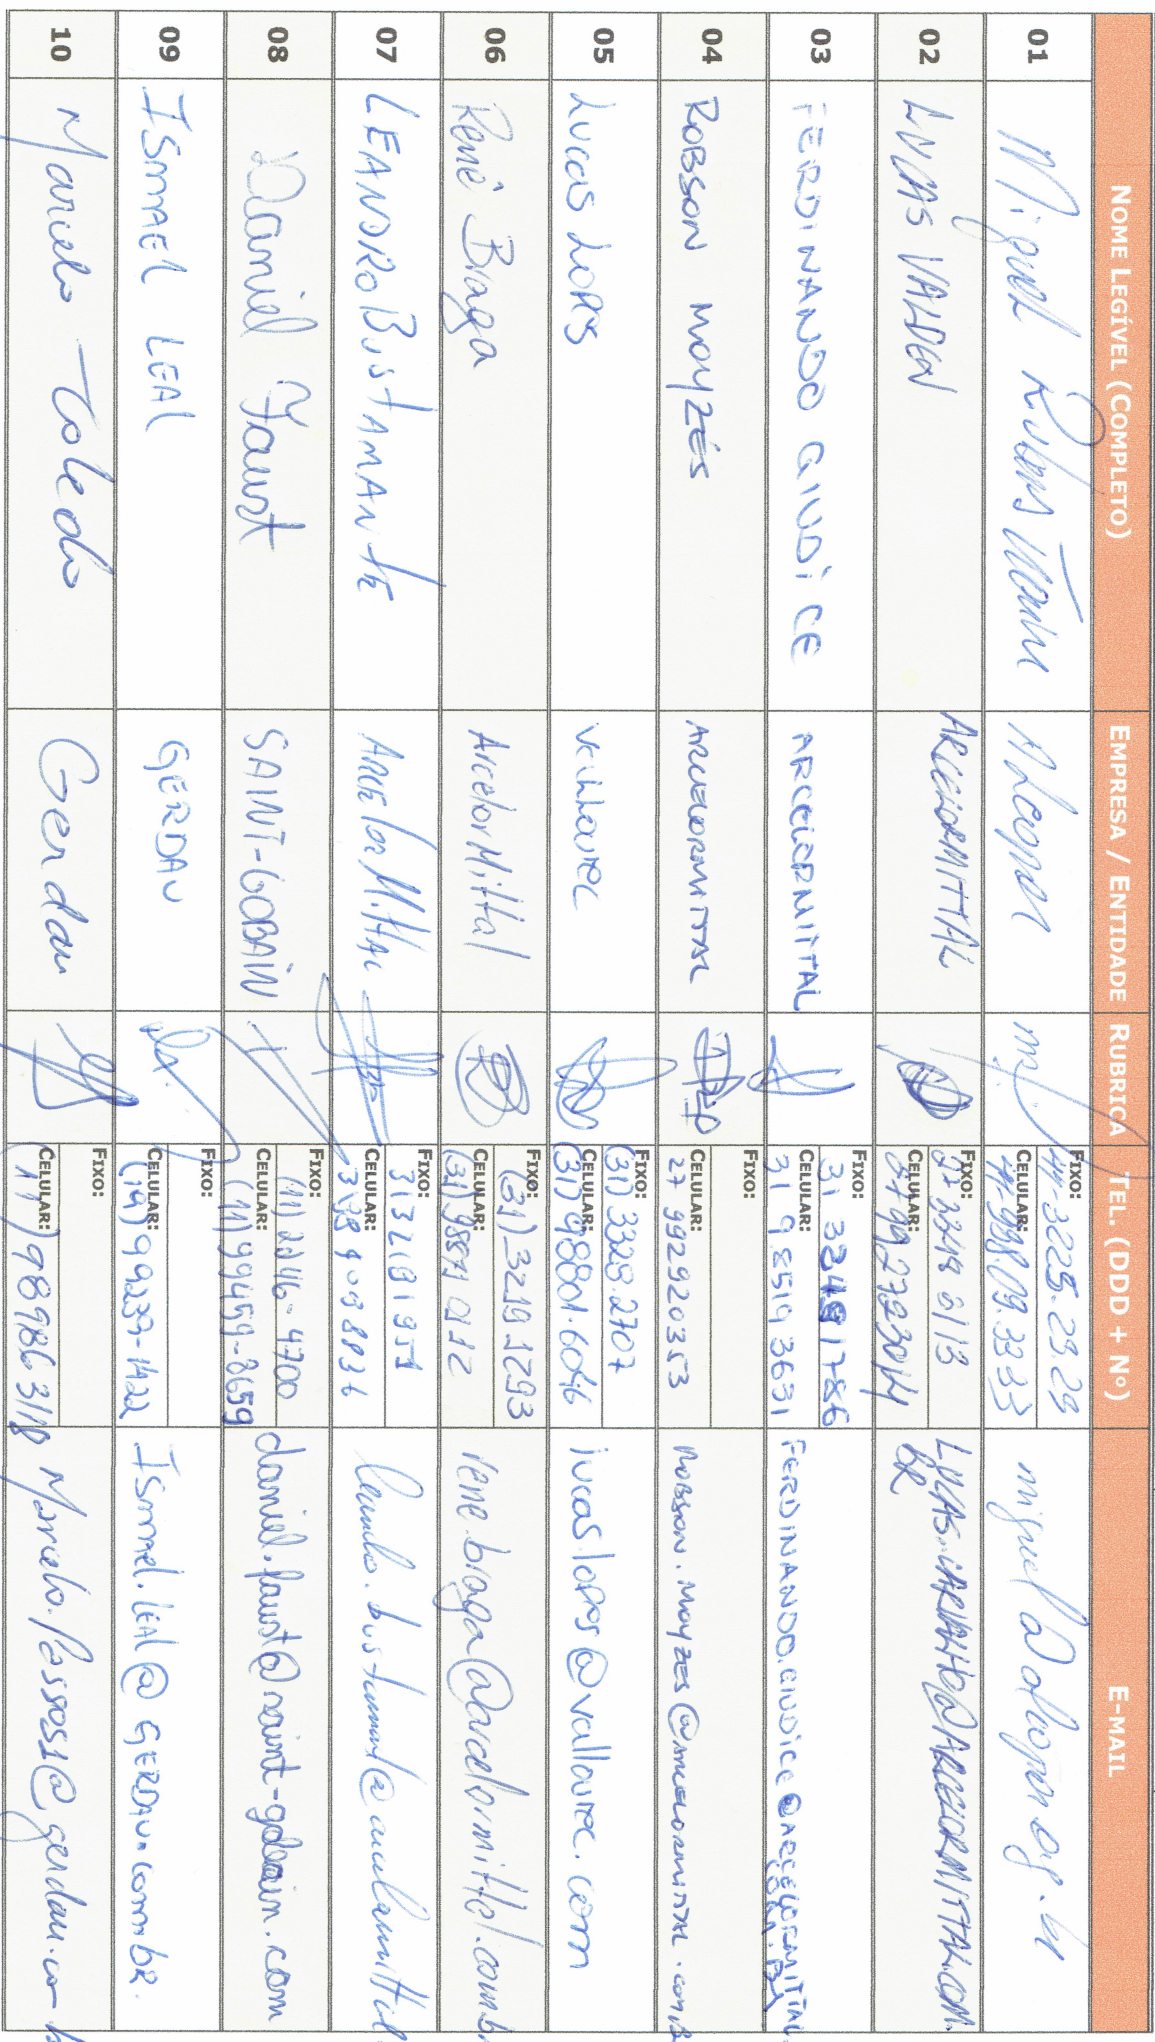 NOME LEGÍVEL (COMPLETO) EMPRESA / ENTIDADE RUBRICA TEL. (DDD + Nº) E-MAIL
01 Miguel Rubens Alcopar FIXO: 44-3225.29.29
CELULAR: 44-998.09.3333
02 LUCAS ARCELORMITTAL FIXO:
CELULAR:
LUCAS.MARIANO@ARCELORMITTAL.COM.
BR
03 FERDINANDO GIUDICE ARCELORMITTAL FIXO: 31 3349 1786
CELULAR: 31 9 8519 3631
FERDINANDO.GIUDICE@ARCELORMITTAL
.COM.BR
04 ROBSON MOYZÉS ARCELORMITTAL 27 992920353 ROBSON.MOYZES@ARCELORMITTAL.COM.B
05 Lucas Lopes Vallourec (31) 3328.2707
CELULAR: (31) 98801.6046
lucas.lopes@vallourec.com
06 Renê Braga ArcelorMittal FIXO: (31) 3219 1293
CELULAR: (31) 98871 0912
rene.braga@arcelormittal.com.b
07 LEANDRO BUSTAMANTE ArcelorMittal FIXO: 3132191951
CELULAR:
leandro.bustamante@arcelormittal
08 Daniel Faust SAINT-GOBAIN FIXO: (11) 2246-4700
CELULAR: (11) 99459-8659
daniel.faust@saint-gobain.com
09 ISMAEL LEAL GERDAU FIXO:
CELULAR: (19) 99239-1422
ISmael.leal@GERDAU.com.br.
10 Marcelo Toledo Gerdau FIXO:
CELULAR: 11) 989863118
Marcelo.passos1@gerdau.com.b